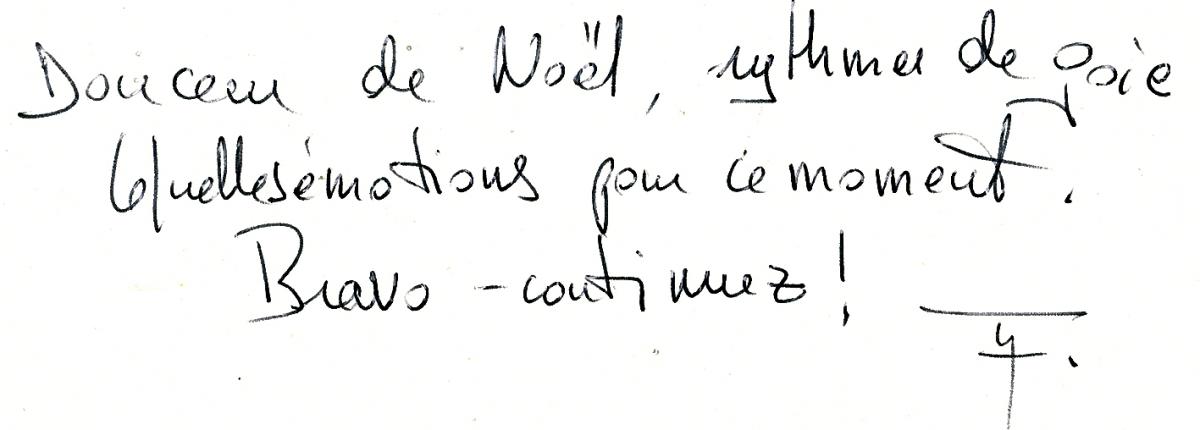 Douceur de Noël, rythmes de joie
Quelles émotions pour ce moment.
Bravo - continuez !